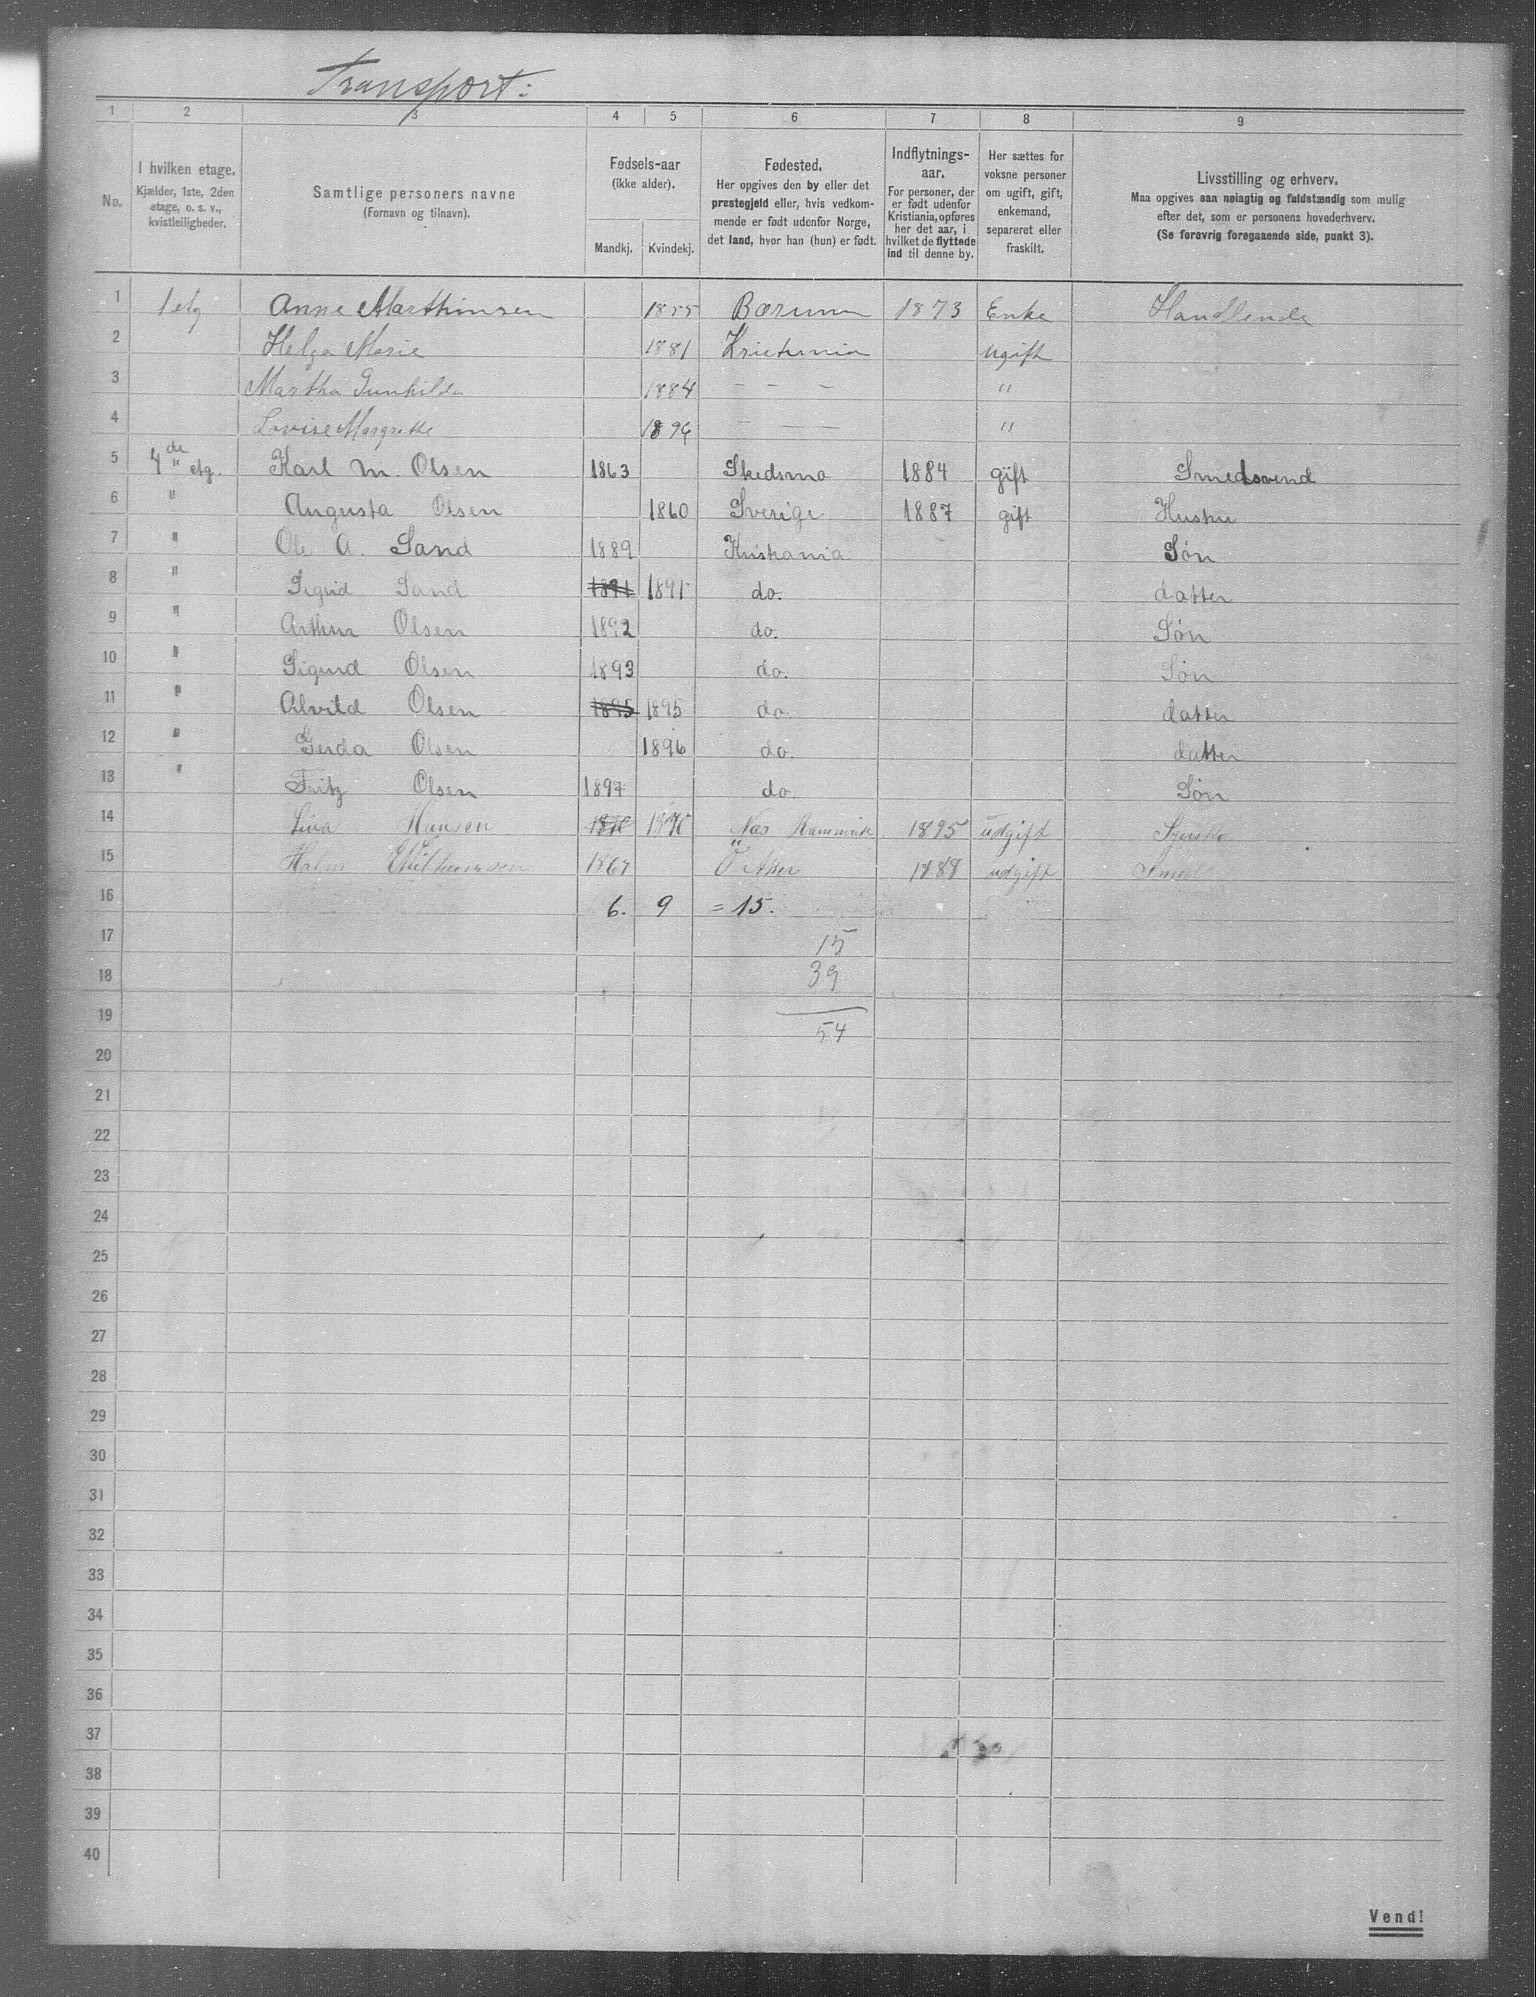 Transport:
1 2 3 4 5 6 7 8 9
No. I hvilken etage. Kjælder, 1ste, 2den etage, o. s. v., kvistleiligheder. Samtlige personers navne (Fornavn og tilnavn). Fødsels-aar (ikke alder). Mandkj. Kvindekj. Fødested. Her opgives den by eller det prestegjeld eller, hvis vedkommende er født udenfor Norge, det land, hvor han (hun) er født. Indflytnings-aar. For personer, der er født udenfor Kristiania, opføres her det aar, i hvilket de flyttede ind til denne by. Her sættes for voksne personer om ugift, gift, enkemand, separeret eller fraskilt. Livsstilling og erhverv. Maa opgives saa nøiagtig og fuldstændig som mulig efter det, som er personens hovederhverv. (Se forøvrig foregaaende side, punkt 3).
1 1 etg Anne Marthinsen 1855 Bærum 1873 Enke Handlende
2 Helga Marie 1881 Kristiania ugift
3 Martha Gunhilda 1884 – – – "
4 Lovise Margrethe – – – "
5 4de etg. Karl M. Olsen 1863 Skedsmo 1884 gift Smedsvend
6 " Augusta Olsen 1860 Sverige 1887 gift Hustru
7 " Ole A. Sand 1889 Kristiania Søn
8 " Sigrid Sand 1891 1891 do. datter
9 " Arthur Olsen 1892 do. Søn
10 " Sigurd Olsen 1893 do. Søn
11 " Alvild Olsen 1895 1895 do. datter
12 " Gerda Olsen 1896 do. datter
13 " Fritz Olsen 1897 do. Søn
14 Lina Hansen Næs 1895 udgift
15 1867 Ö Aker 1888 udgift Smed
16 6. 9 = 15.
17 15
18 39
19 54
20
21
22
23
24
25
26
27
28
29
30
31
32
33
34
35
36
37
38
39
40
Vend!